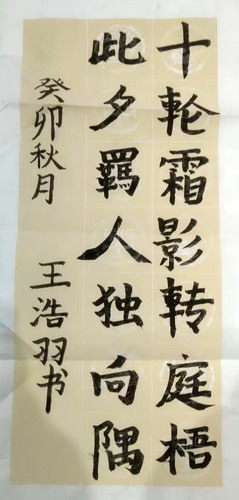 十轮霜影转庭梧
此夕羁人独向隅
癸卯秋月 王浩羽书